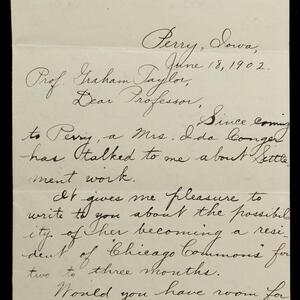 Perry, Iowa,
June 18, 1902.
Prof. Graham Taylor,
Dear Professor,
Since coming
to Perry, a Mrs. Ida Conger
has talked to me about Settle-
ment work.
It gives me pleasure to
write to you about the possibil-
ity of her becoming a resi-
dent of "Chicago Commons" for
two to three months.
Would you have room for